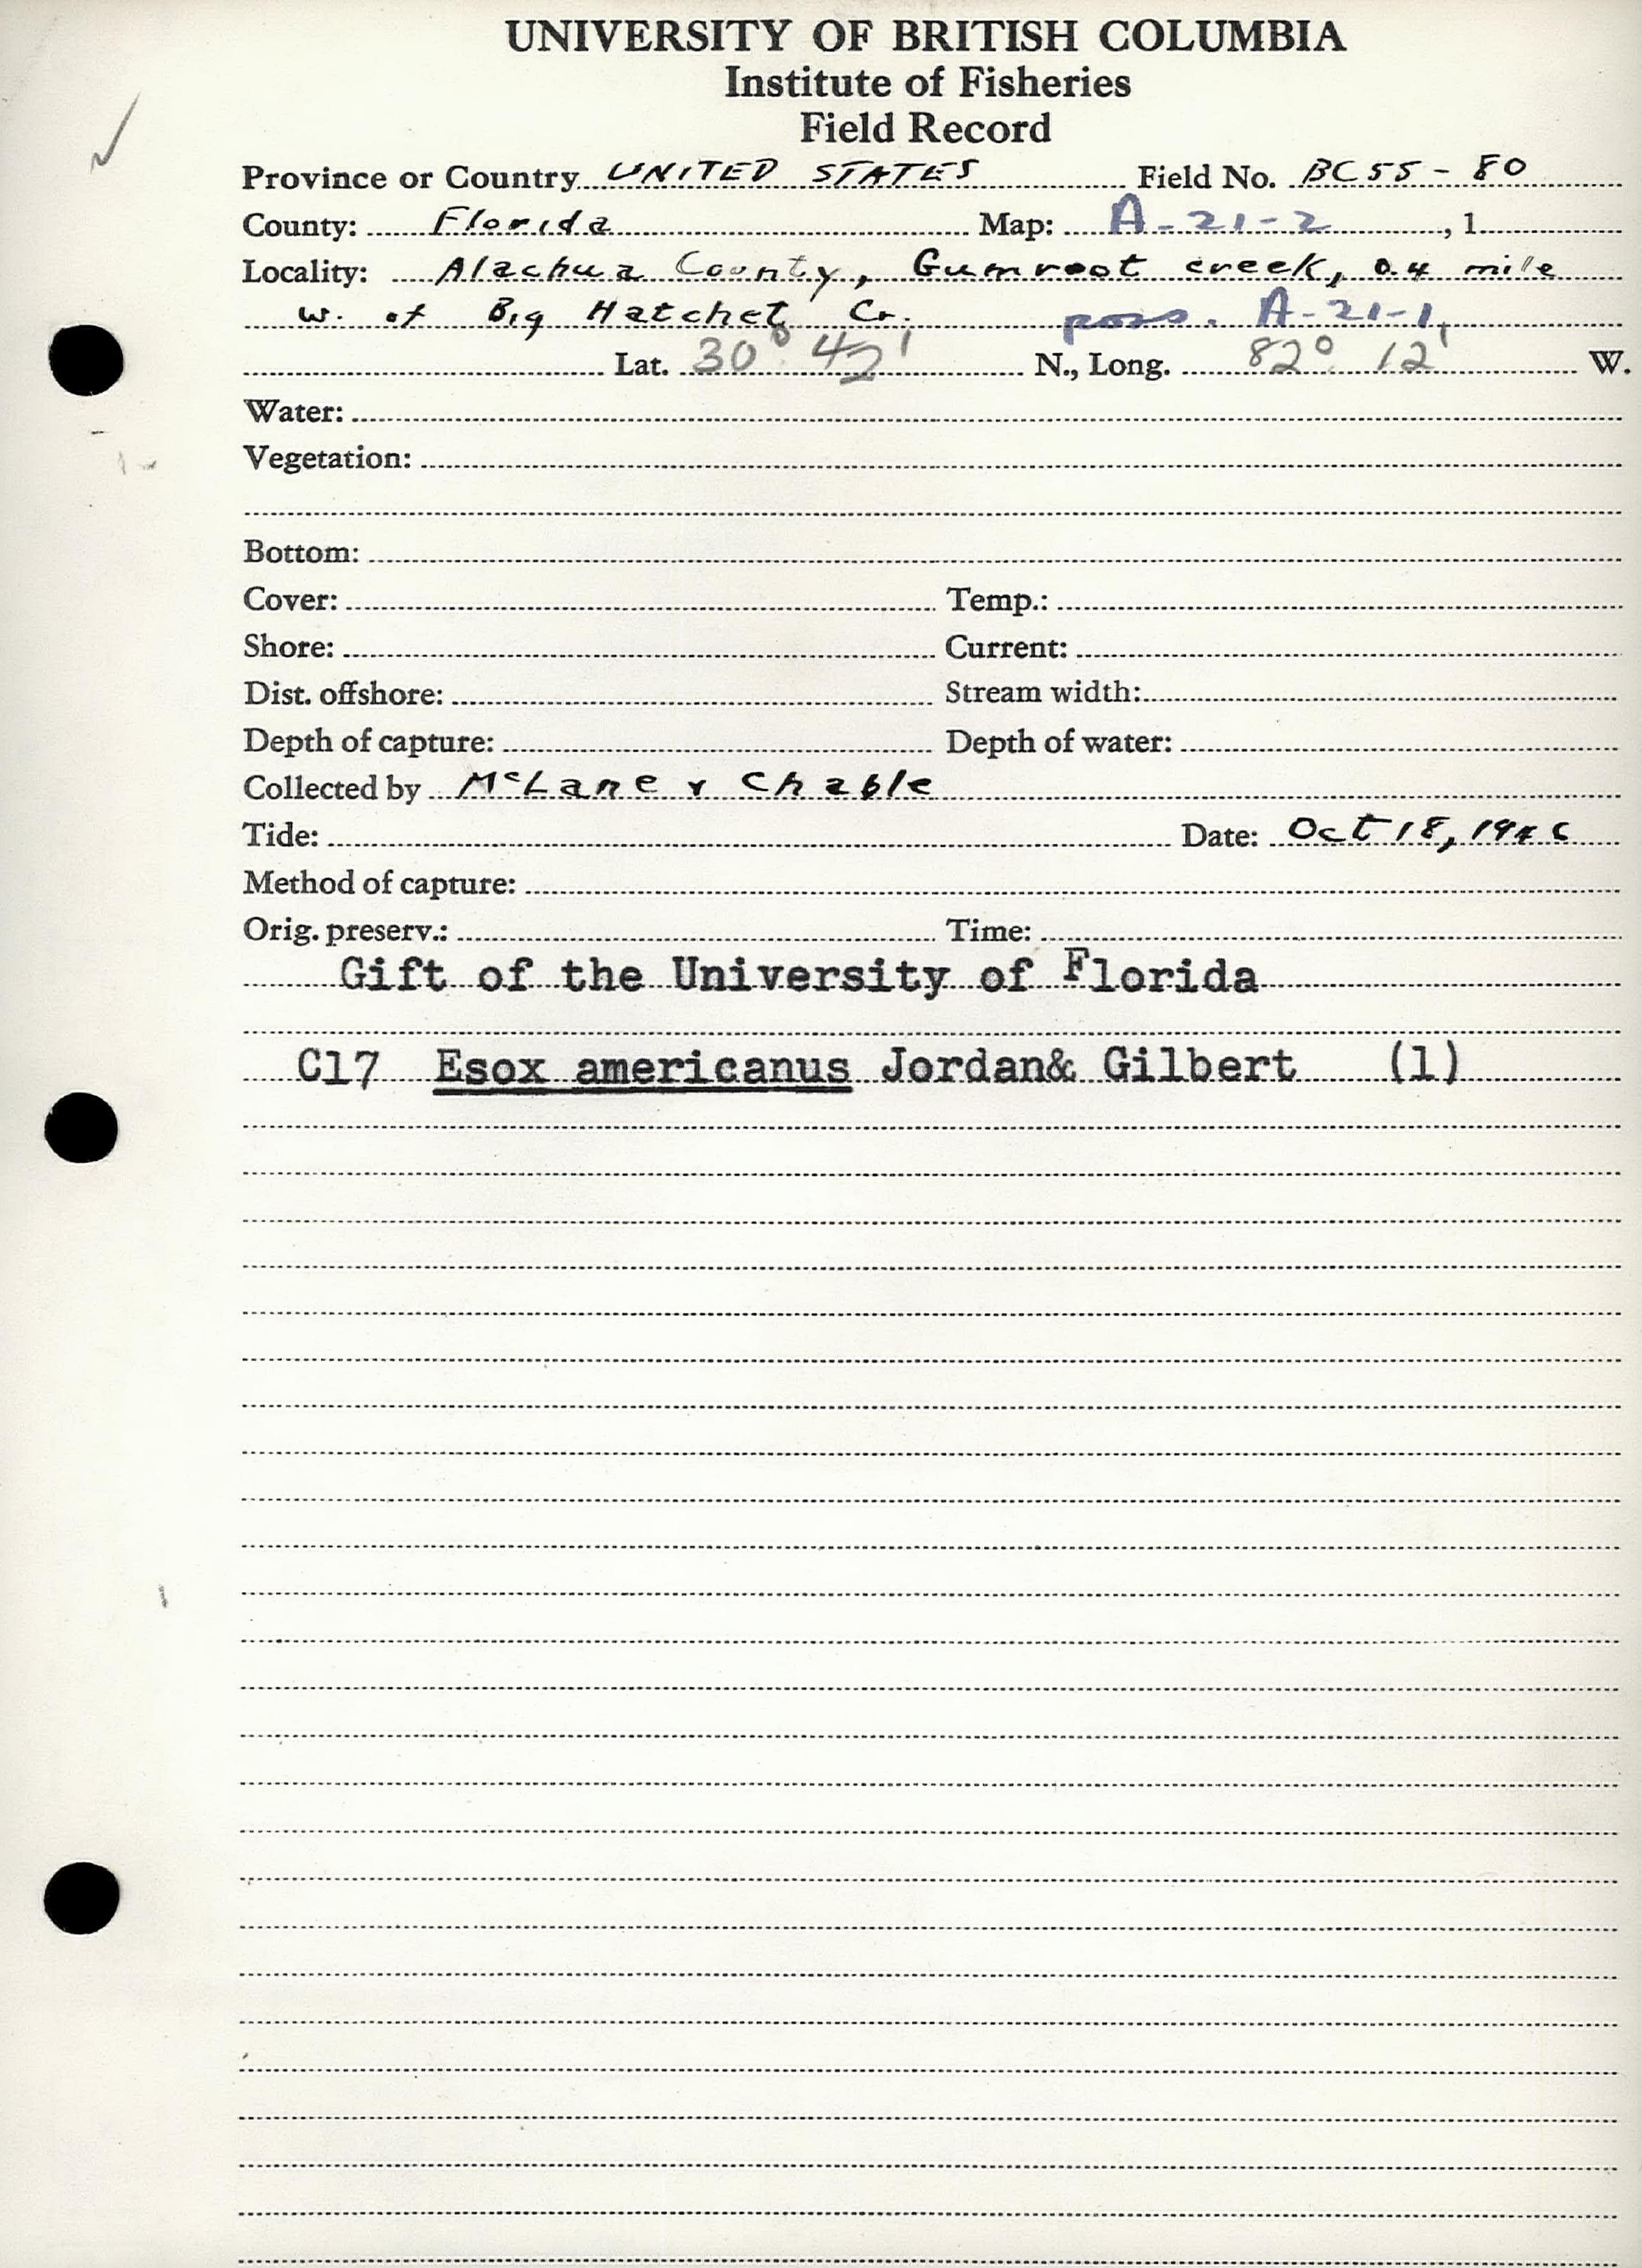 UNIVERSITY OF BRITISH COLUMBIA
Institute of Fisheries
Field Record
Province or Country UNITED STATES Field No. BC55-80
County: Florida Map: A-21-2, 1
Locality: Alachua County, Gumroot creek, 0.4 mile
w. of Big Hatchet Cr. poss. A-21-1
Lat. 30° 42' N., Long. 82° 12' W.
Water:
Vegetation:
Bottom:
Cover: Temp.:
Shore: Current:
Dist. offshore: Stream width:
Depth of capture: Depth of water:
Collected by McLane & Chable
Tide: Date: Oct 18,
Method of capture:
Orig. preserv.: Time:
Gift of the University of Florida
C17 Esox americanus Jordan& Gilbert (1)